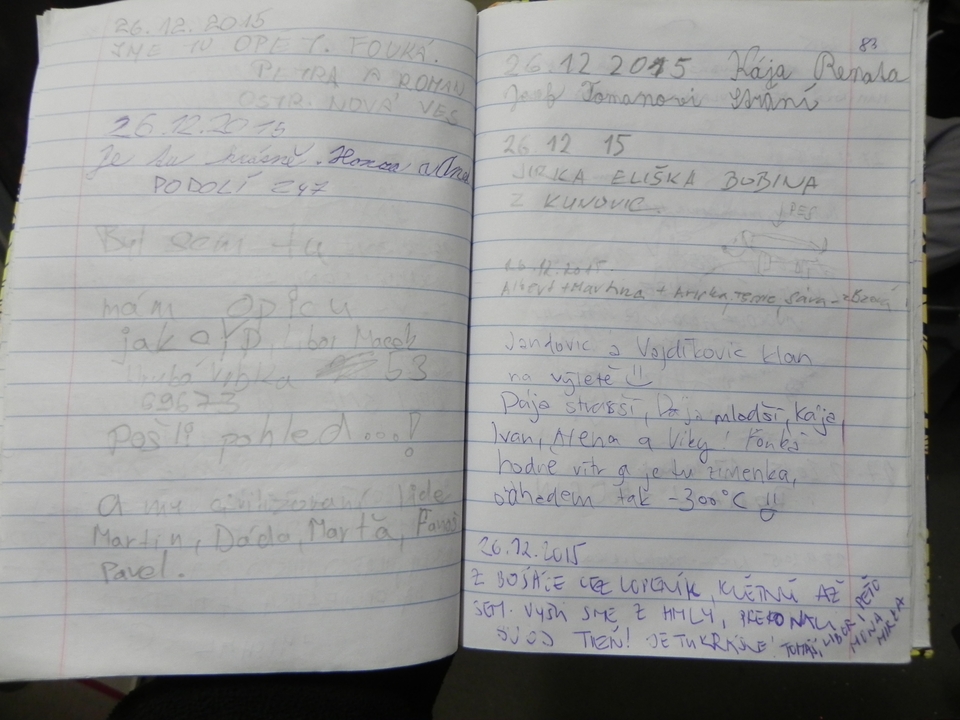 26.12.2015
SME TU OPĚT. FOUKÁ.
PETRA A ROMAN
OSTR. NOVÁ VES
26.12.2015
Je tu krásně. Honza a
PODOLÍ 247
Byl sem tu
mám opicu
jak Libor Macek
Hrubá Vrbka 53
69673
Pošli pohled...!
A my civilizovaní lidé
Martin, Dáda, Marťa,
Pavel.
83
26.12 2015 Kája Renata
Josef Tomanovi Strání
26.12 15
JIRKA ELIŠKA BUBINA
Z KUNOVIC
PES
26.12.2015
Albert + Martina +
Jandovic a Vajdíkovic klan
na výletě
Dája starší, Dája mladší, Kája,
Ivan, Alena a Viky! Fouká
hodně vítr a je tu zimenka,
odhadem tak -300°C
26.12.2015
Z BOŠÁCE CEZ LOPENÍK, KVĚTNÚ AŽ
SEM. VYŠLI SME Z HMLY, PREKONALI
SVOJ TIEŇ! JE TU KRÁSNE! TOMÁŠ, LIBOR, PEŤO
MIRKA